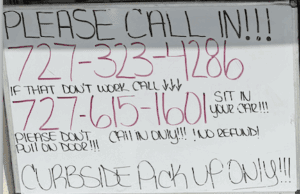 PLEASE CALL IN!!!
727-323-4286
IF THAT DON'T WORK CALL ↓↓↓
727-615-1601 SIT IN YOUR CAR!!!
PLEASE DON'T CALL IN ONLY!!! NO REFUND!
PULL ON DOOR!!!
CURBSIDE PICK UP ONLY!!!